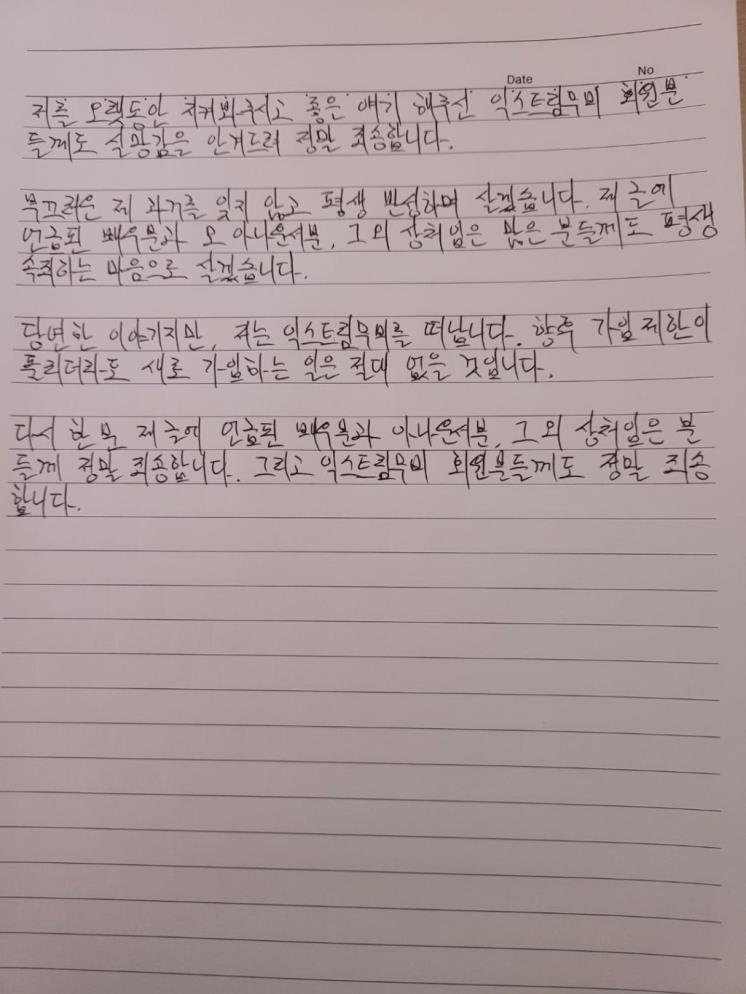 Date
No
저를 오랫동안 지켜봐주시고 좋은 얘기 해주신 익스트림무비 회원분
들께도 실망감을 안겨드려 정말 죄송합니다.
부끄러운 제 과거를 잊지 않고 평생 반성하며 살겠습니다. 제 글에
언급된 배우분과 오 아나운서분, 그 외 상처입은 많은 분들께도 평생
속죄하는 마음으로 살겠습니다.
당연한 이야기지만, 저는 익스트림무비를 떠납니다. 향후 가입제한이
풀리더라도 새로 가입하는 일은 절대 없을 것입니다.
다시 한 번 제 글에 언급된 배우분과 아나운서분, 그 외 상처입은 분
들께 정말 죄송합니다. 그리고 익스트림무비 회원분들께도 정말 죄송
합니다.